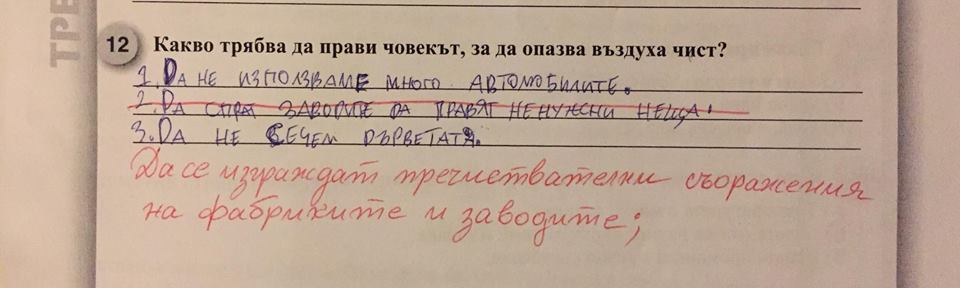 ТРЕ
12 Какво трябва да прави човекът, за да опазва въздуха чист?
1. ДА НЕ ИЗПОЛЗВАМЕ МНОГО АВТОМОБИЛИТЕ.
2. ДА СПРАТ ЗАВОДИТЕ ДА ПРАВЯТ НЕНУЖСНИ НЕЩА.
3. ДА НЕ СЕЧЕМ ДЪРВЕТАТА.
Да се изграждат пречиствателни съоражения
на фабриките и заводите;